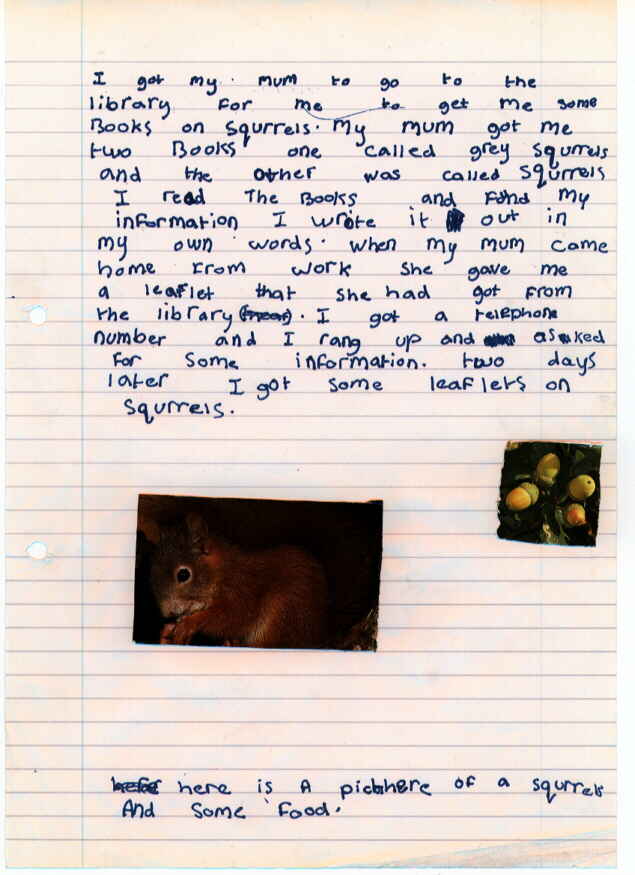 I got my mum to go to the
library for me to get me some
Books on squrrels. My mum got me
two Books one called grey squrrels
and the other was called squrrels
I read The Books and find my
information I wrote it out in
my own words. when my mum came
home from work she gave me
a leaflet that she had got from
the library. I got a telephone
number and I rang up and asked
for some information. two days
later I got some leaflets on
squrrels.
here is A picthere of a squrrels
And some food.